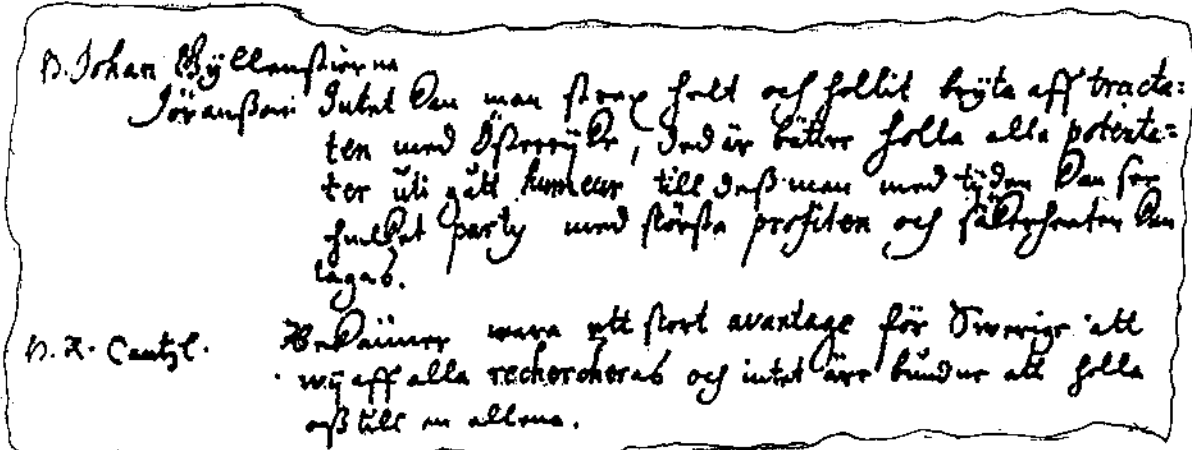 H. Johan Gÿllenstierna
Jöranßon Intet kan man strax helt och hollit brÿta aff tracta=
ten med Österrÿke, ded är bättre holla alla potenta=
ter uti gått humeur till deß man med tÿden kan see
hwilket party med största profiten och säkerheeten kan
tagas.
H. R. Cantzl. Bekänner wara ett stort avantage för Swerige att
wÿ aff alla rechercheras och intet äre bundne att holla
oß till en allena.